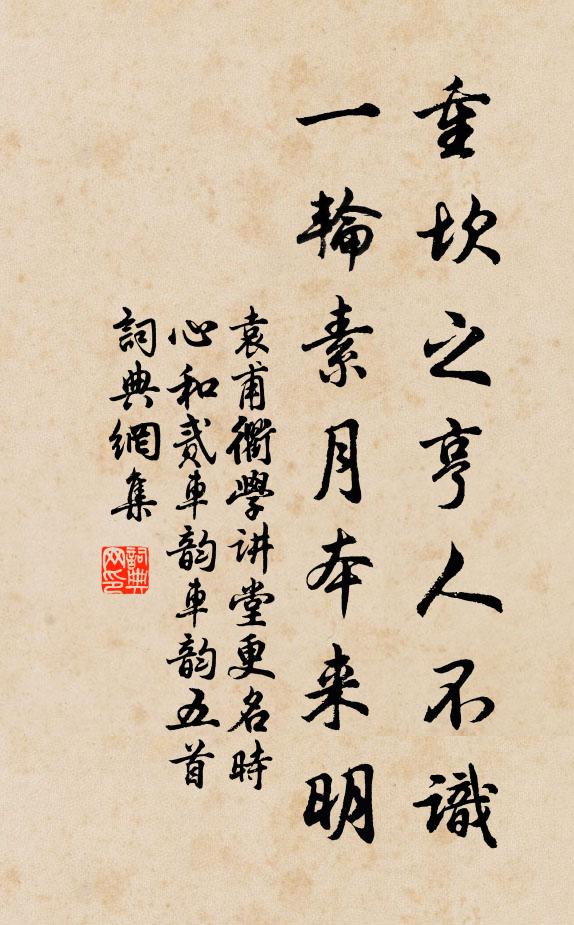 重坎之亨人不識
一輪素月本来明
袁甫衢學讲堂更名時
心和貳車韵車韵五首
詞典網集
詞典网印